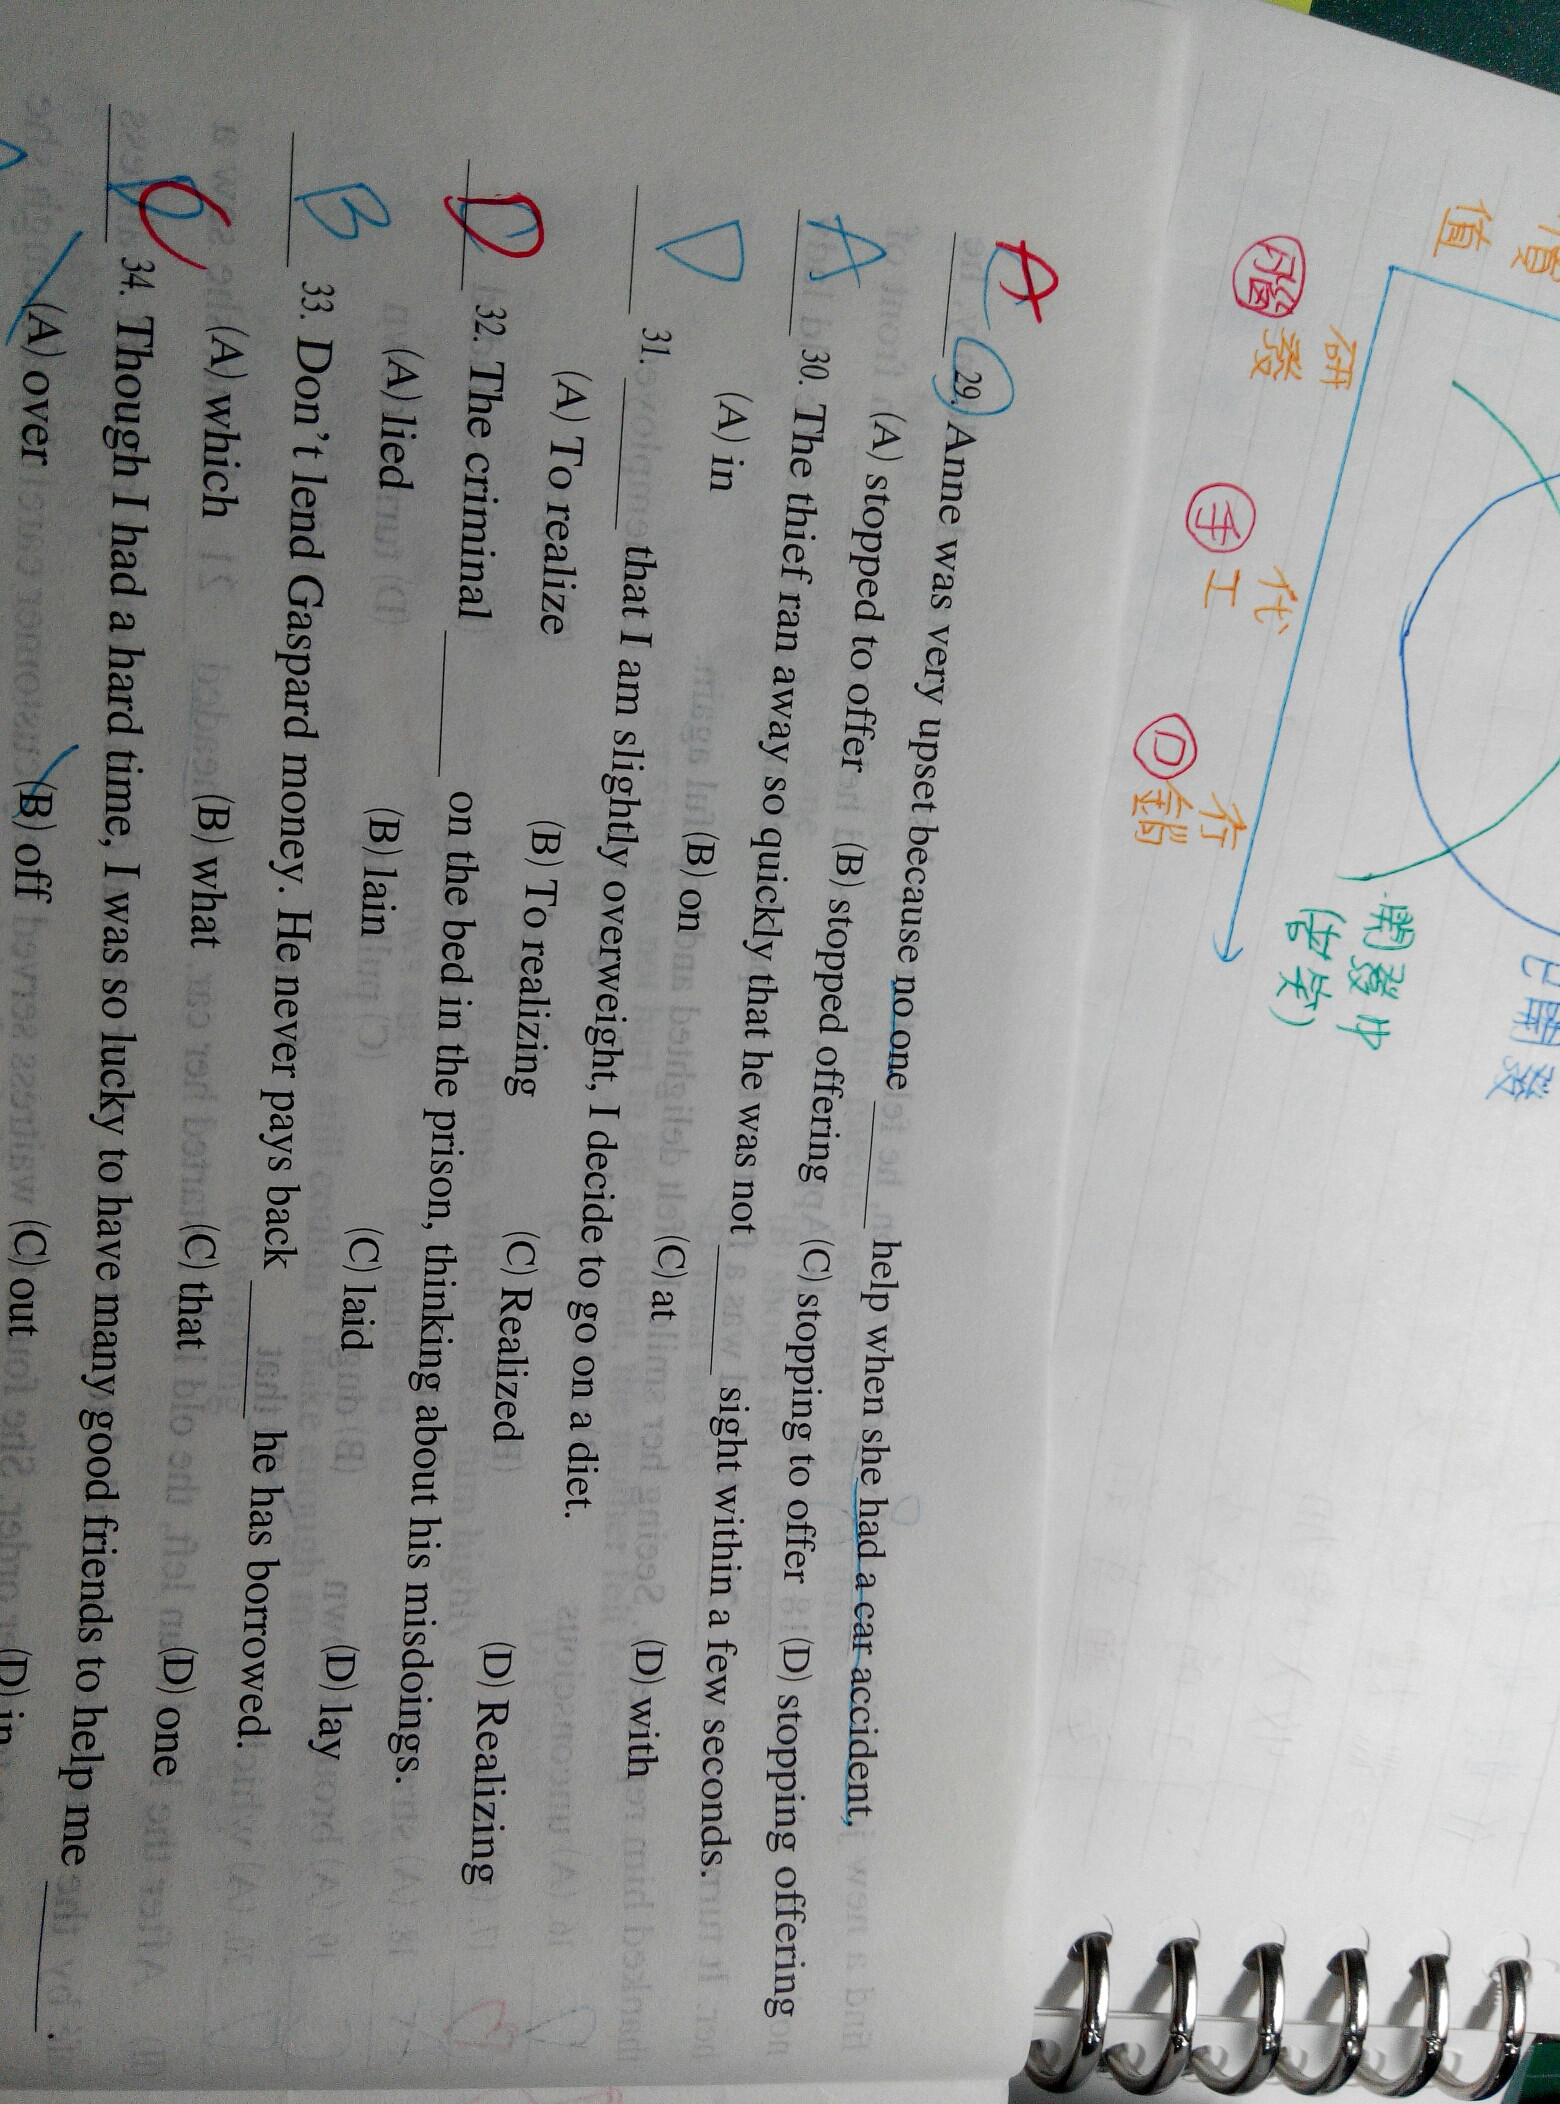 價
值
研
發
腦
代
工
手
行
銷
口
已開發
開發中
(苦笑)
A
C 29. Anne was very upset because no one ______ help when she had a car accident,
(A) stopped to offer (B) stopped offering (C) stopping to offer (D) stopping offering
A 30. The thief ran away so quickly that he was not ______ sight within a few seconds.
(A) in (B) on (C) at (D) with
D 31. ______ that I am slightly overweight, I decide to go on a diet.
(A) To realize (B) To realizing (C) Realized (D) Realizing
D 32. The criminal ______ on the bed in the prison, thinking about his misdoings.
(A) lied (B) lain (C) laid (D) lay
B 33. Don't lend Gaspard money. He never pays back ______ he has borrowed.
(A) which (B) what (C) that (D) one
C 34. Though I had a hard time, I was so lucky to have many good friends to help me ______.
(A) over (B) off (C) out (D) in